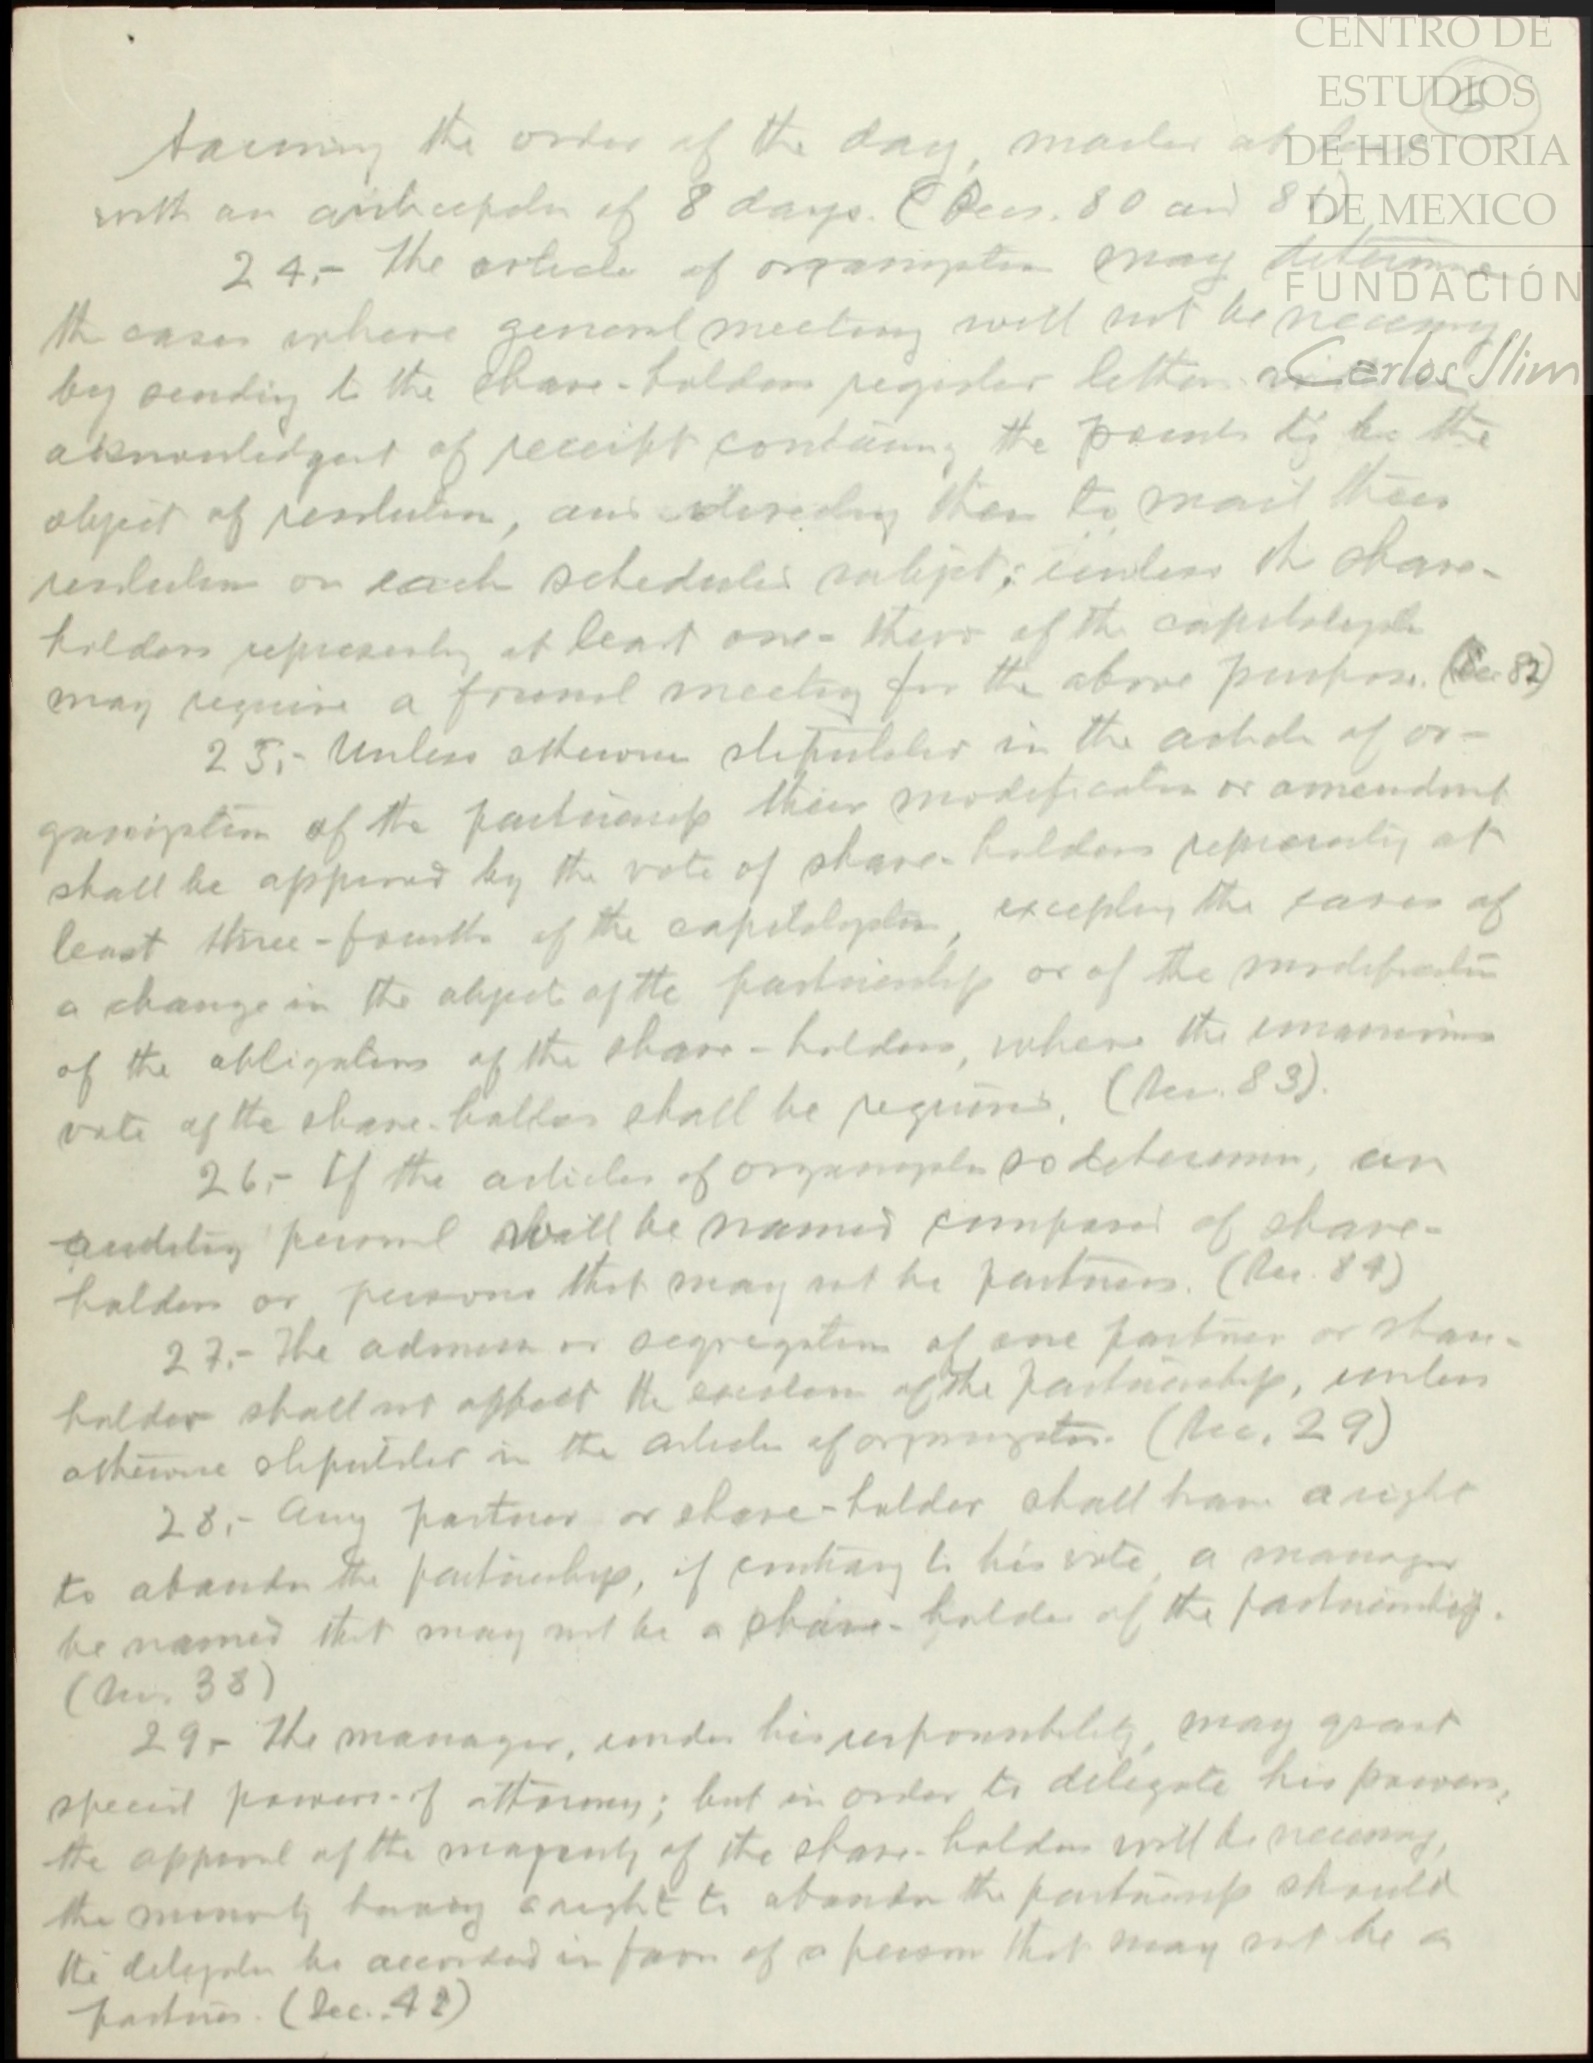 CENTRO DE
ESTUDIOS
DE HISTORIA
DE MEXICO
FUNDACIÓN
Carlos Slim
6
the order of the day, mailed at least
with an of 8 days. (Secs. 80 and 81)
24.- The article of organization may determine
the cases where general meeting will not be necessary
by sending to the share-holders register letters with
acknowledgent of receipt containing the points to be the
object of resolution, and directing them to mail their
resolution on each scheduled subject; unless the share-
holders representing at least one-third of the capitalization
may require a formal meeting for the above purpose. (Sec 82)
25.- Unless otherwise stipulated in the article of or-
ganization of the partnership their modification or amendment
shall be approved by the vote of share-holders representing at
least three-fourths of the capitalization, excepting the cases of
a change in the object of the partnership or of the modification
of the obligations of the share-holders, where the unanimous
vote of the share-holders shall be required. (Sec. 83).
26.- If the articles of organization so determine, an
auditing personal shall be named composed of share-
holders or persons that may not be partners. (Sec. 84)
27.- The admission or segregation of one partner or share-
holder shall not affect the existence of the partnership, unless
otherwise stipulated in the articles of organization. (Sec. 29)
28.- Any partner or share-holder shall have a right
to abandon the partnership, if contrary to his vote, a manager
be named that may not be a share-holder of the partnership.
(Sec. 38)
29.- The manager, under his responsibility, may grant
special powers-of attorney; but in order to delegate his powers,
the approval of the majority of the share-holders will be necessary,
the minority having a right to abandon the partnership should
the delegation be accorded in favor of a person that may not be a
partner. (Sec. 42)